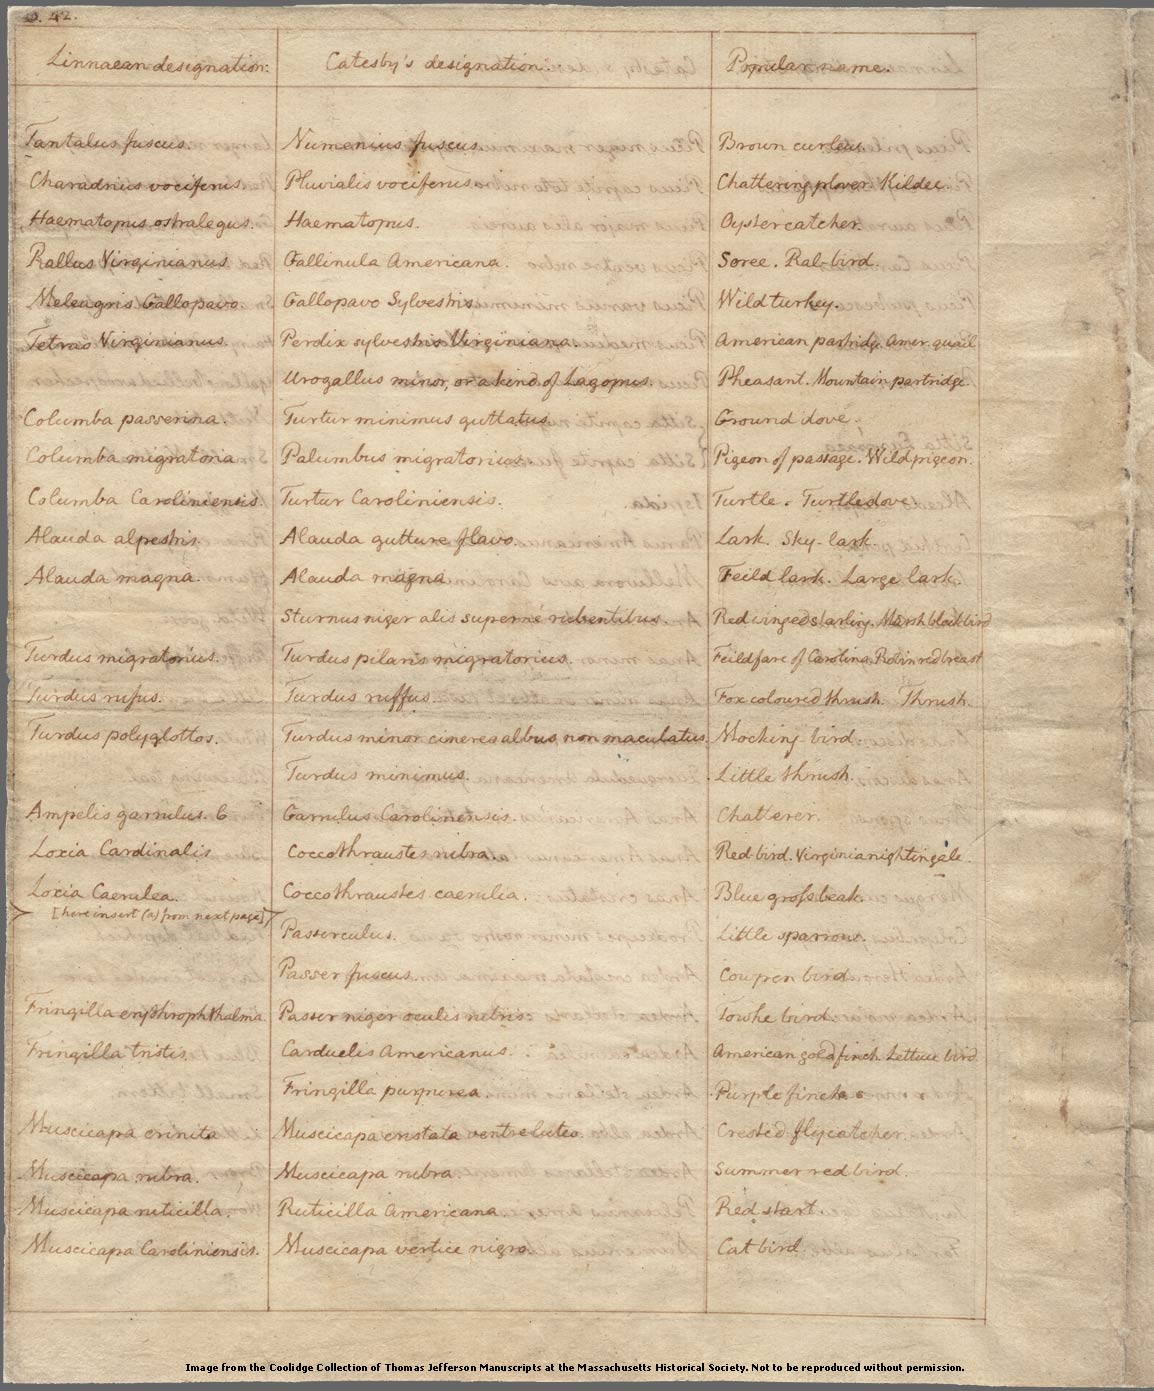 p. 42.
Linnaean designation: Catesby's designation. Popular name.
Tantalus fuscus. Numenius fuscus. Brown curleu.
Charadrius vociferus. Pluvialis vociferus. Chattering plover. Kildee.
Haematopus ostralegus. Haematopus. Oyster catcher.
Rallus Virginianus Gallinula Americana. Soree. Ral-bird.
Meleagris Gallopavo. Gallopavo Sylvestris Wild turkey.
Tetrao Virginianus. Perdix sylvestris Virginiana. American partridge. Amer. quail
Urogallus minor, or a kind of Lagopus. Pheasant. Mountain partridge.
Columba passerina. Turtur minimus guttatus. Ground dove.
Columba migratoria Palumbus migratorius. Pigeon of passage. Wild pigeon.
Columba Caroliniensis. Turtur Caroliniensis. Turtle. Turtle dove.
Alauda alpestris. Alauda gutture flavo. Lark. Sky-lark.
Alauda magna. Alauda magna Feild lark. Large lark.
Sturnus niger alis supernè rubentibus. Red winged starling. Marsh blackbird
Turdus migratorius. Turdus pilaris migratorius. Feildfare of Carolina. Robin redbreast
Turdus rufus. Turdus ruffus. Fox coloured thrush. Thrush.
Turdus polyglottos. Turdus minor cinereo albus non maculatus. Mocking bird.
Turdus minimus. Little thrush.
Ampelis garrulus. 6 Garrulus Carolinensis. Chatterer.
Loxia Cardinalis Coccothraustes rubra. Red bird. Virginia nightingale.
Loxia Caerulea. Coccothraustes caerulia. Blue gross beak.
[here insert (a) from next page]
Passerculus. Little sparrow.
Passer fuscus. Cowpen bird.
Fringilla erythrophthalma. Passer niger oculis rubris. Towhe bird.
Fringilla tristis. Carduelis Americanus. American goldfinch. Lettuce bird
Fringilla purpurea. Purple finch.
Muscicapa crinita Muscicapa cristata ventre luteo. Crested flycatcher.
Muscicapa rubra. Muscicapa rubra. Summer red bird.
Muscicapa ruticilla. Ruticilla Americana. Red start.
Muscicapa Caroliniensis. Muscicapa vertice nigro. Cat bird.
Image from the Coolidge Collection of Thomas Jefferson Manuscripts at the Massachusetts Historical Society. Not to be reproduced without permission.